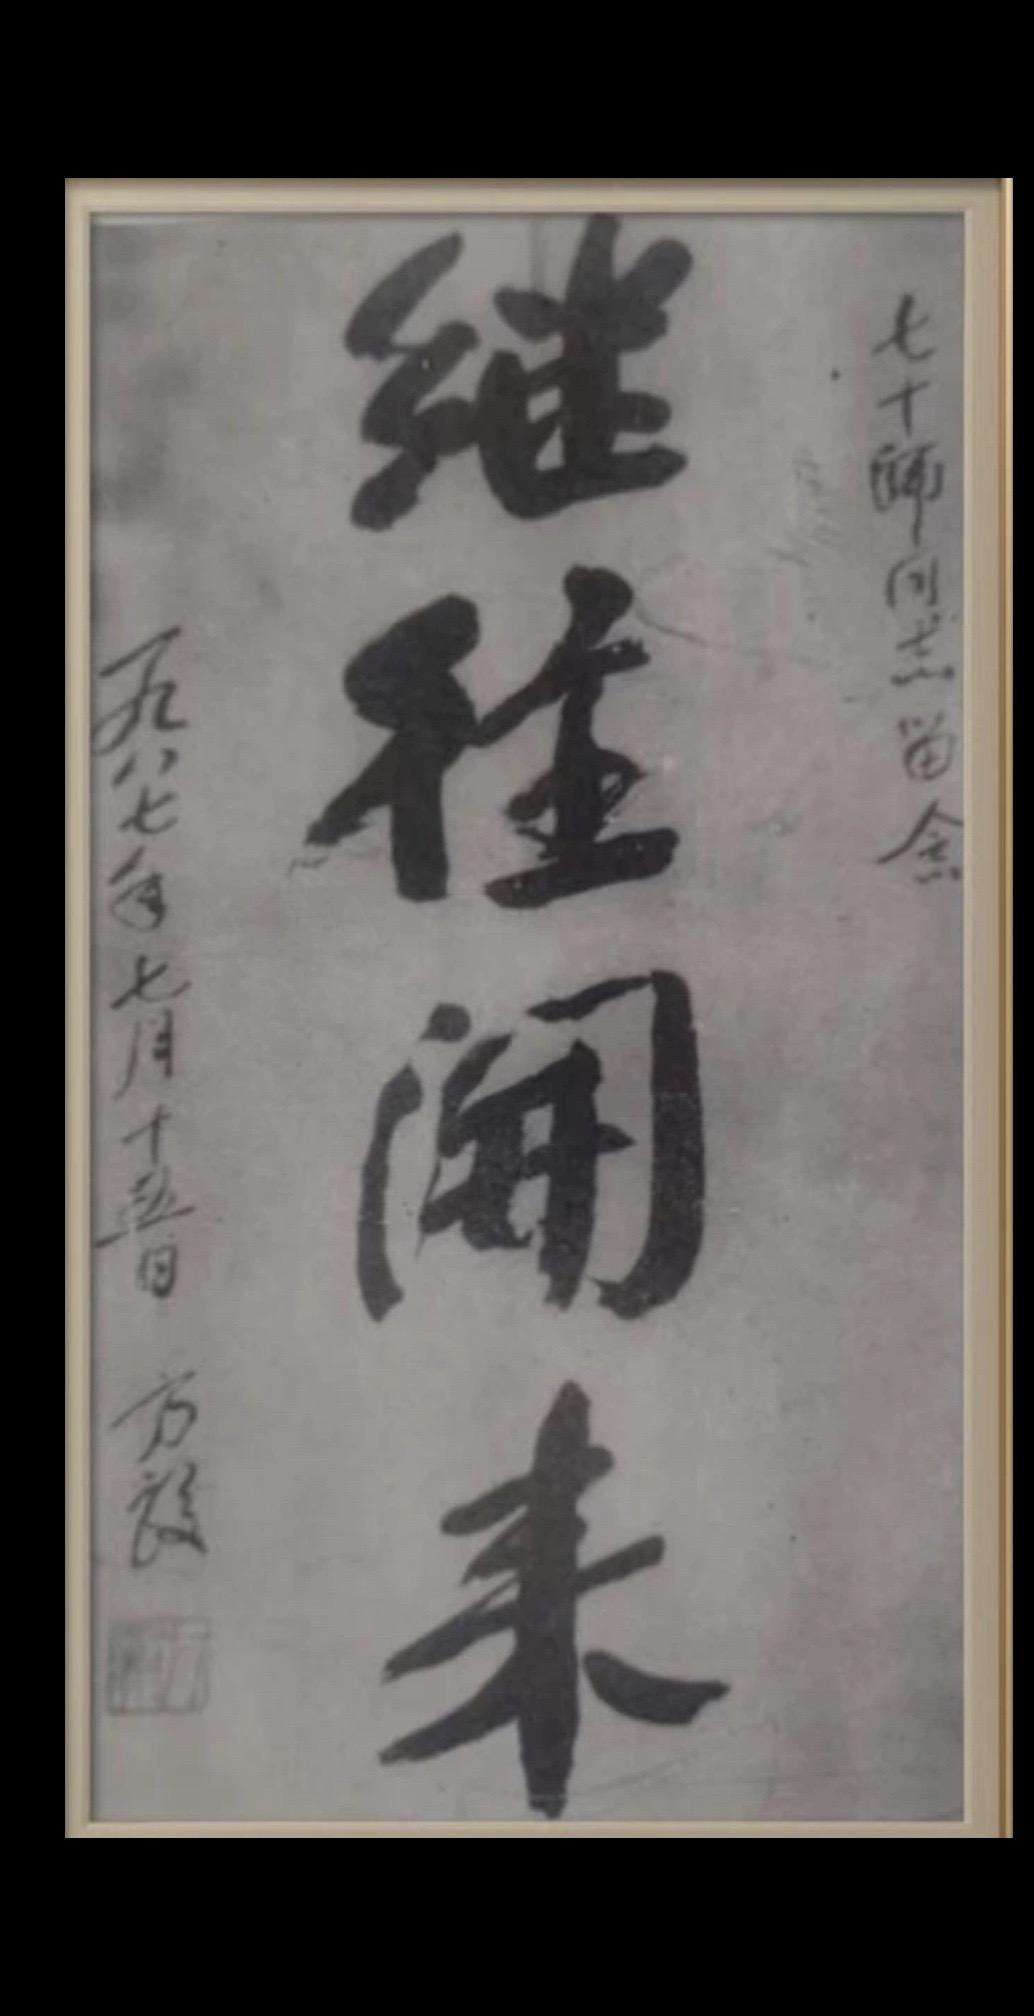 七十师同志留念
继往开来
一九八七年七月十五日 方毅